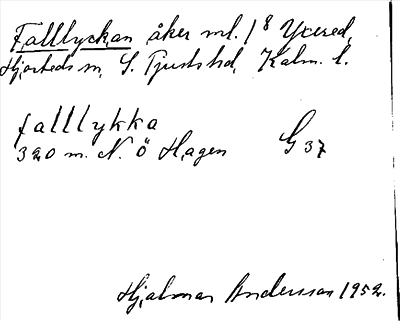 Falllyckan åker ml. 1⁸ Yxered,
Hjorteds sn, S. Tjusts hd, Kalm. l.
falllykka
320 m. N. Ö Hagen G 37
Hjalmar Andersson 1952.